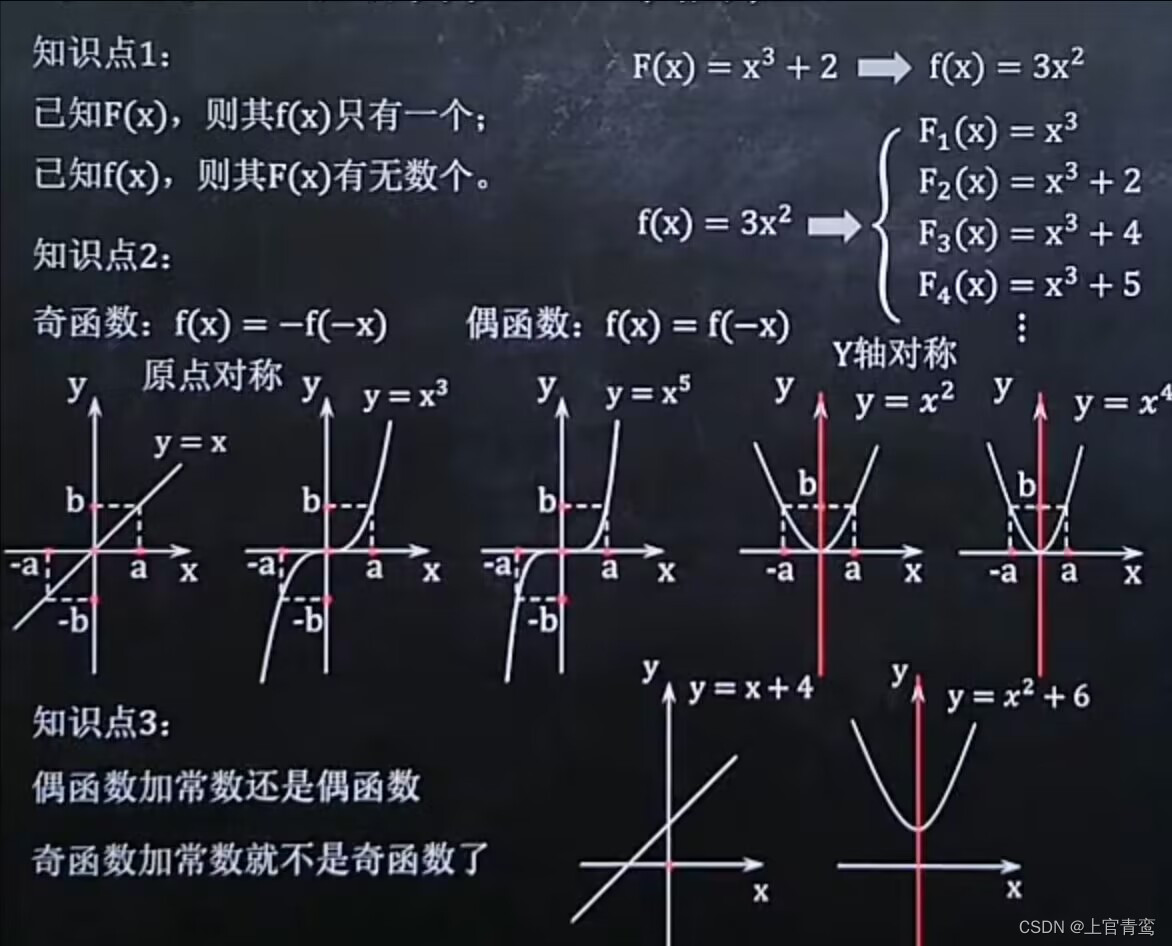 知识点1：
已知F(x)，则其f(x)只有一个；
已知f(x)，则其F(x)有无数个。
F(x) = x³ + 2 f(x) = 3x²
f(x) = 3x²
F₁(x) = x³
F₂(x) = x³ + 2
F₃(x) = x³ + 4
F₄(x) = x³ + 5
⋮
知识点2：
奇函数：f(x) = −f(−x)
偶函数：f(x) = f(−x)
原点对称
Y轴对称
y
y = x
b
-a
a
x
-b
y
y = x³
b
-a
a
x
-b
y
y = x⁵
b
-a
a
x
-b
y
y = x²
b
-a
a
x
y
y = x⁴
b
-a
a
x
知识点3：
偶函数加常数还是偶函数
奇函数加常数就不是奇函数了
y
y = x + 4
x
y
y = x² + 6
x
CSDN @上官青鸾